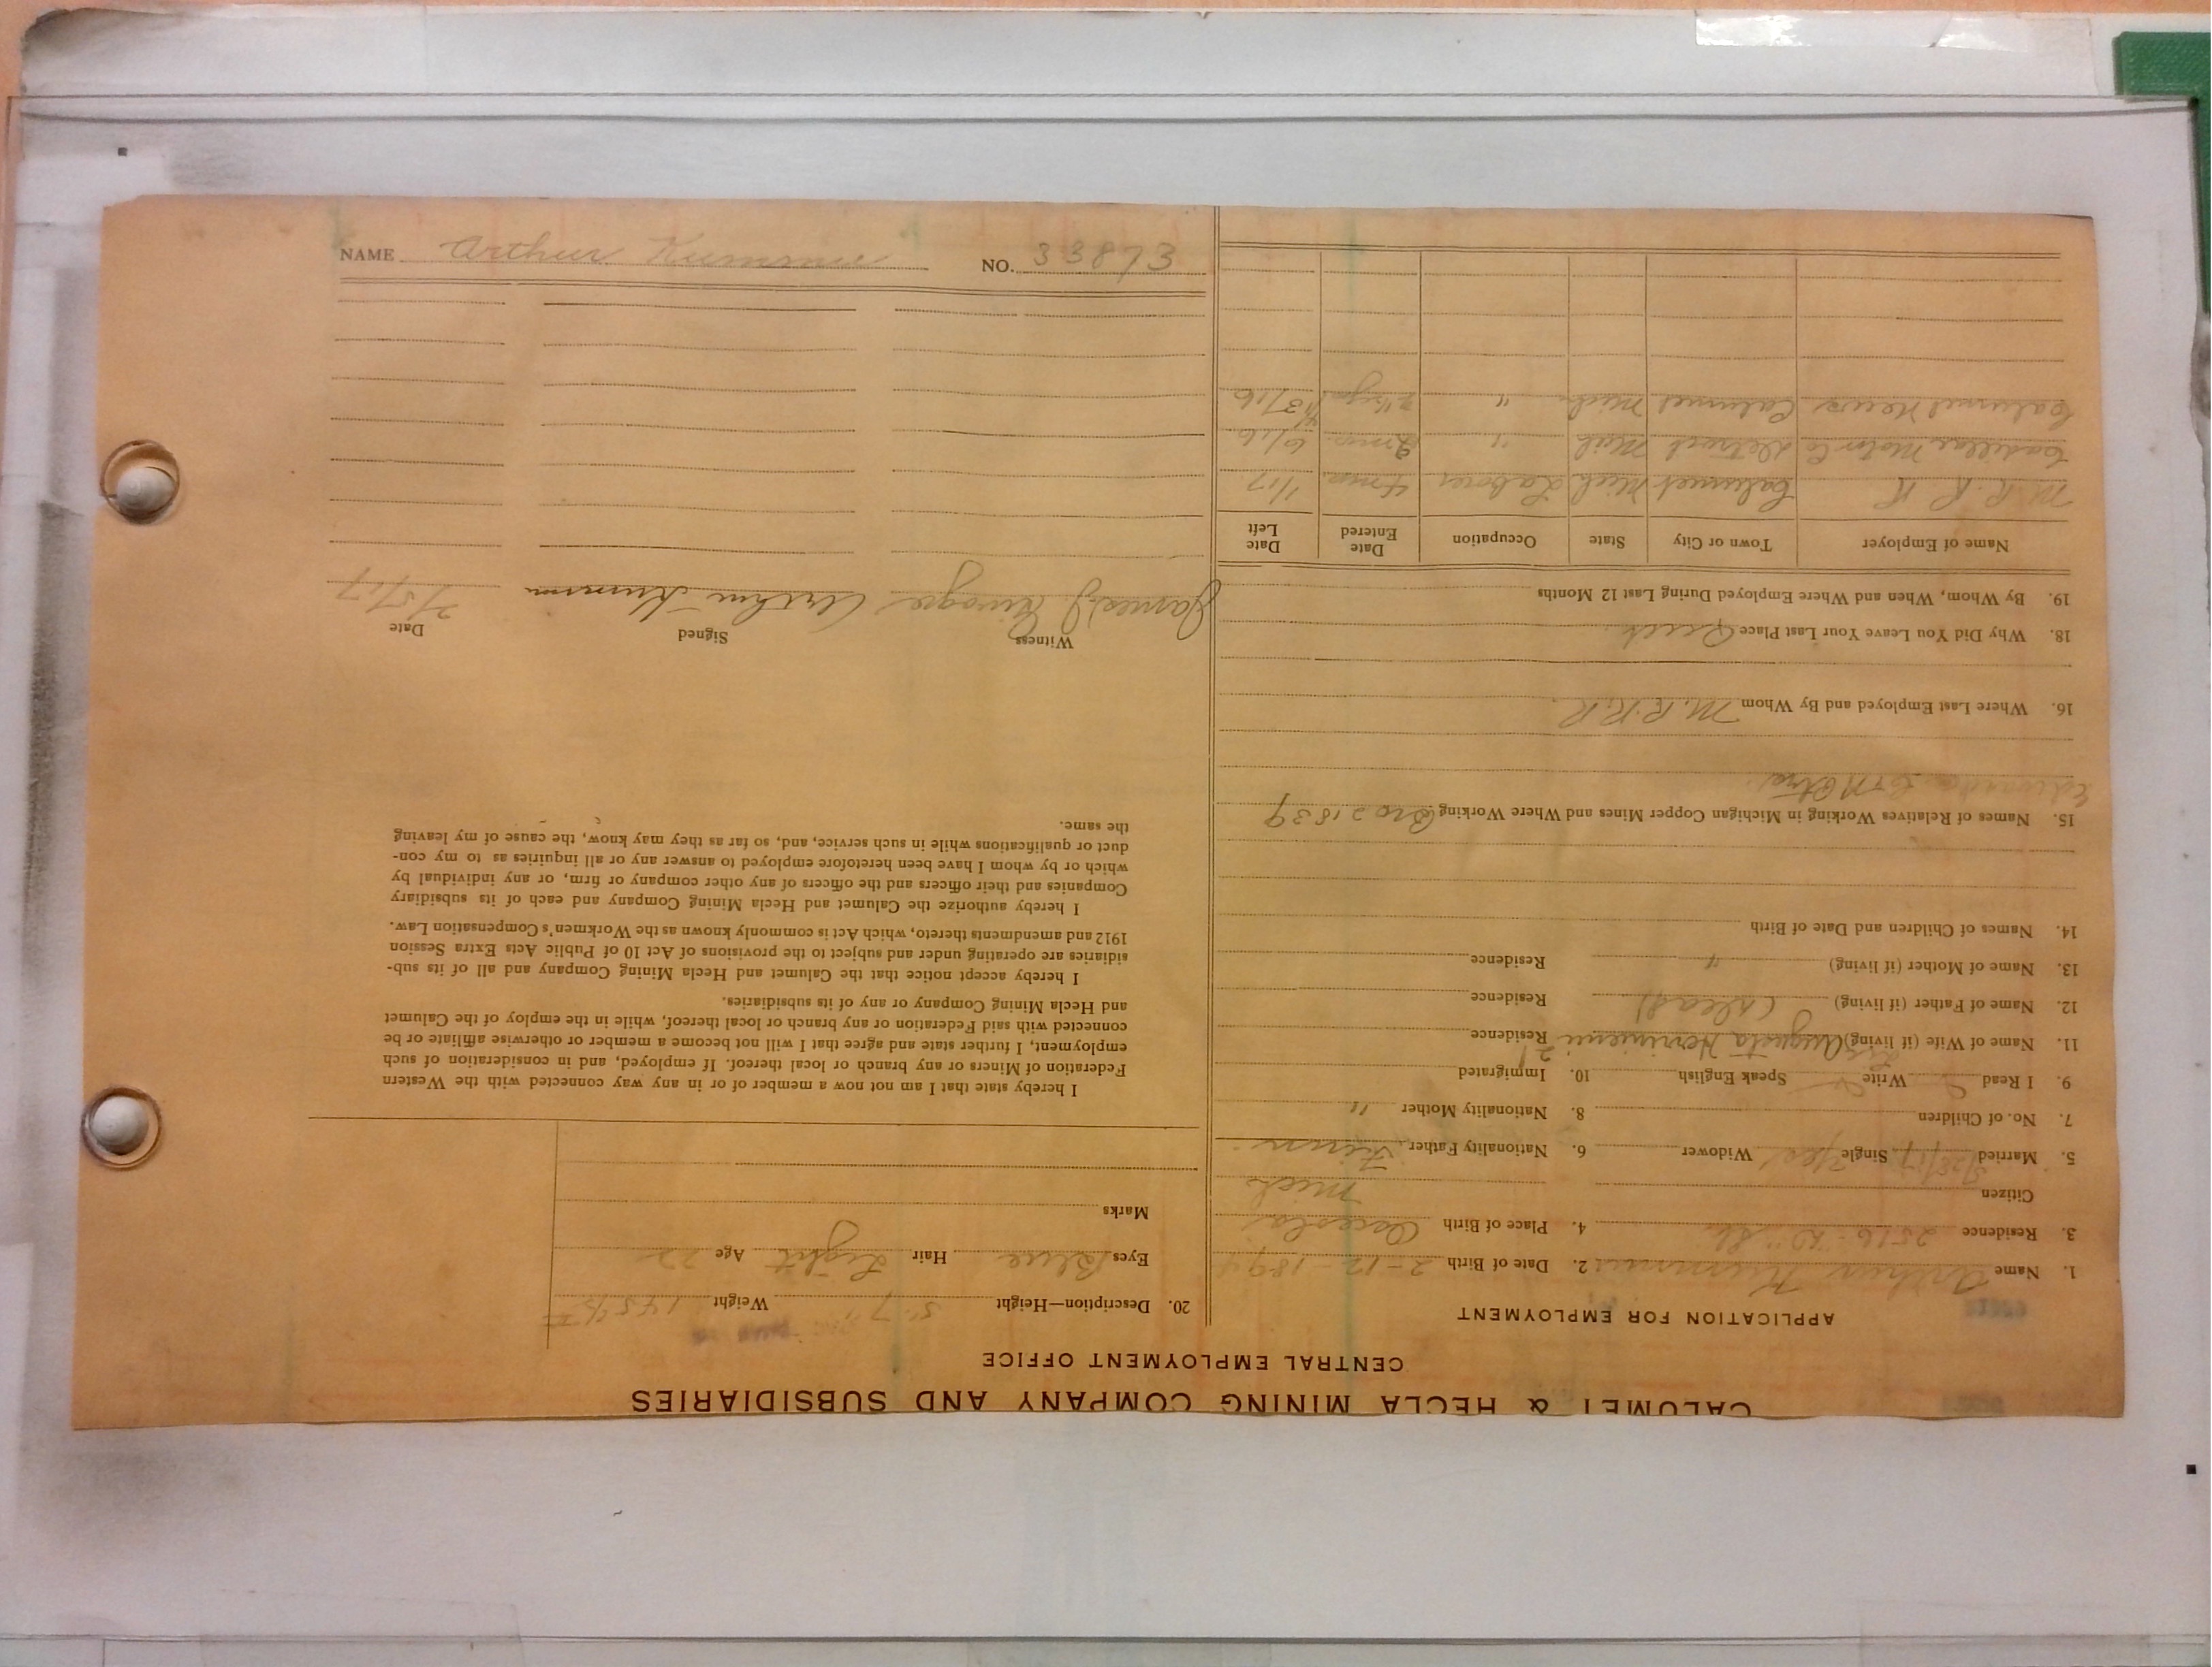 CALUMET & HECLA MINING COMPANY AND SUBSIDIARIES
CENTRAL EMPLOYMENT OFFICE
APPLICATION FOR EMPLOYMENT
1. Name Arthur 2. Date of Birth 2-12-1894
3. Residence 2516 - 4. Place of Birth Osceola
Citizen Mich
5. Married 3/28/17 Single Yes Widower 6. Nationality Father Finn
7. No. of Children 8. Nationality Mother "
9. I Read Write Speak English 10. Immigrated
11. Name of Wife (if living) Augusta Residence
12. Name of Father (if living) (Dead) Residence
13. Name of Mother (if living) " Residence
14. Names of Children and Date of Birth
15. Names of Relatives Working in Michigan Copper Mines and Where Working Bro 21839
Edward
16. Where Last Employed and By Whom M.R.R.R.
18. Why Did You Leave Your Last Place Quit
19. By Whom, When and Where Employed During Last 12 Months
Name of Employer Town or City State Occupation Date Entered Date Left
M. R. R R Calumet Mich Laborer 4 mos. 1/17
Cadillac Motor Co Detroit Mich " 2 mos. 6/16
Calumet News Calumet Mich "
20. Description—Height 5'-7" Weight 145
Eyes Blue Hair Light Age 22
Marks
I hereby state that I am not now a member of or in any way connected with the Western
Federation of Miners or any branch or local thereof. If employed, and in consideration of such
employment, I further state and agree that I will not become a member or otherwise affiliate or be
connected with said Federation or any branch or local thereof, while in the employ of the Calumet
and Hecla Mining Company or any of its subsidiaries.
I hereby accept notice that the Calumet and Hecla Mining Company and all of its sub-
sidiaries are operating under and subject to the provisions of Act 10 of Public Acts Extra Session
1912 and amendments thereto, which Act is commonly known as the Workmen's Compensation Law.
I hereby authorize the Calumet and Hecla Mining Company and each of its subsidiary
Companies and their officers and the officers of any other company or firm, or any individual by
which or by whom I have been heretofore employed to answer any or all inquiries as to my con-
duct or qualifications while in such service, and, so far as they may know, the cause of my leaving
the same.
Witness Signed Date
James J Arthur 2/5/17
NAME Arthur NO. 33873